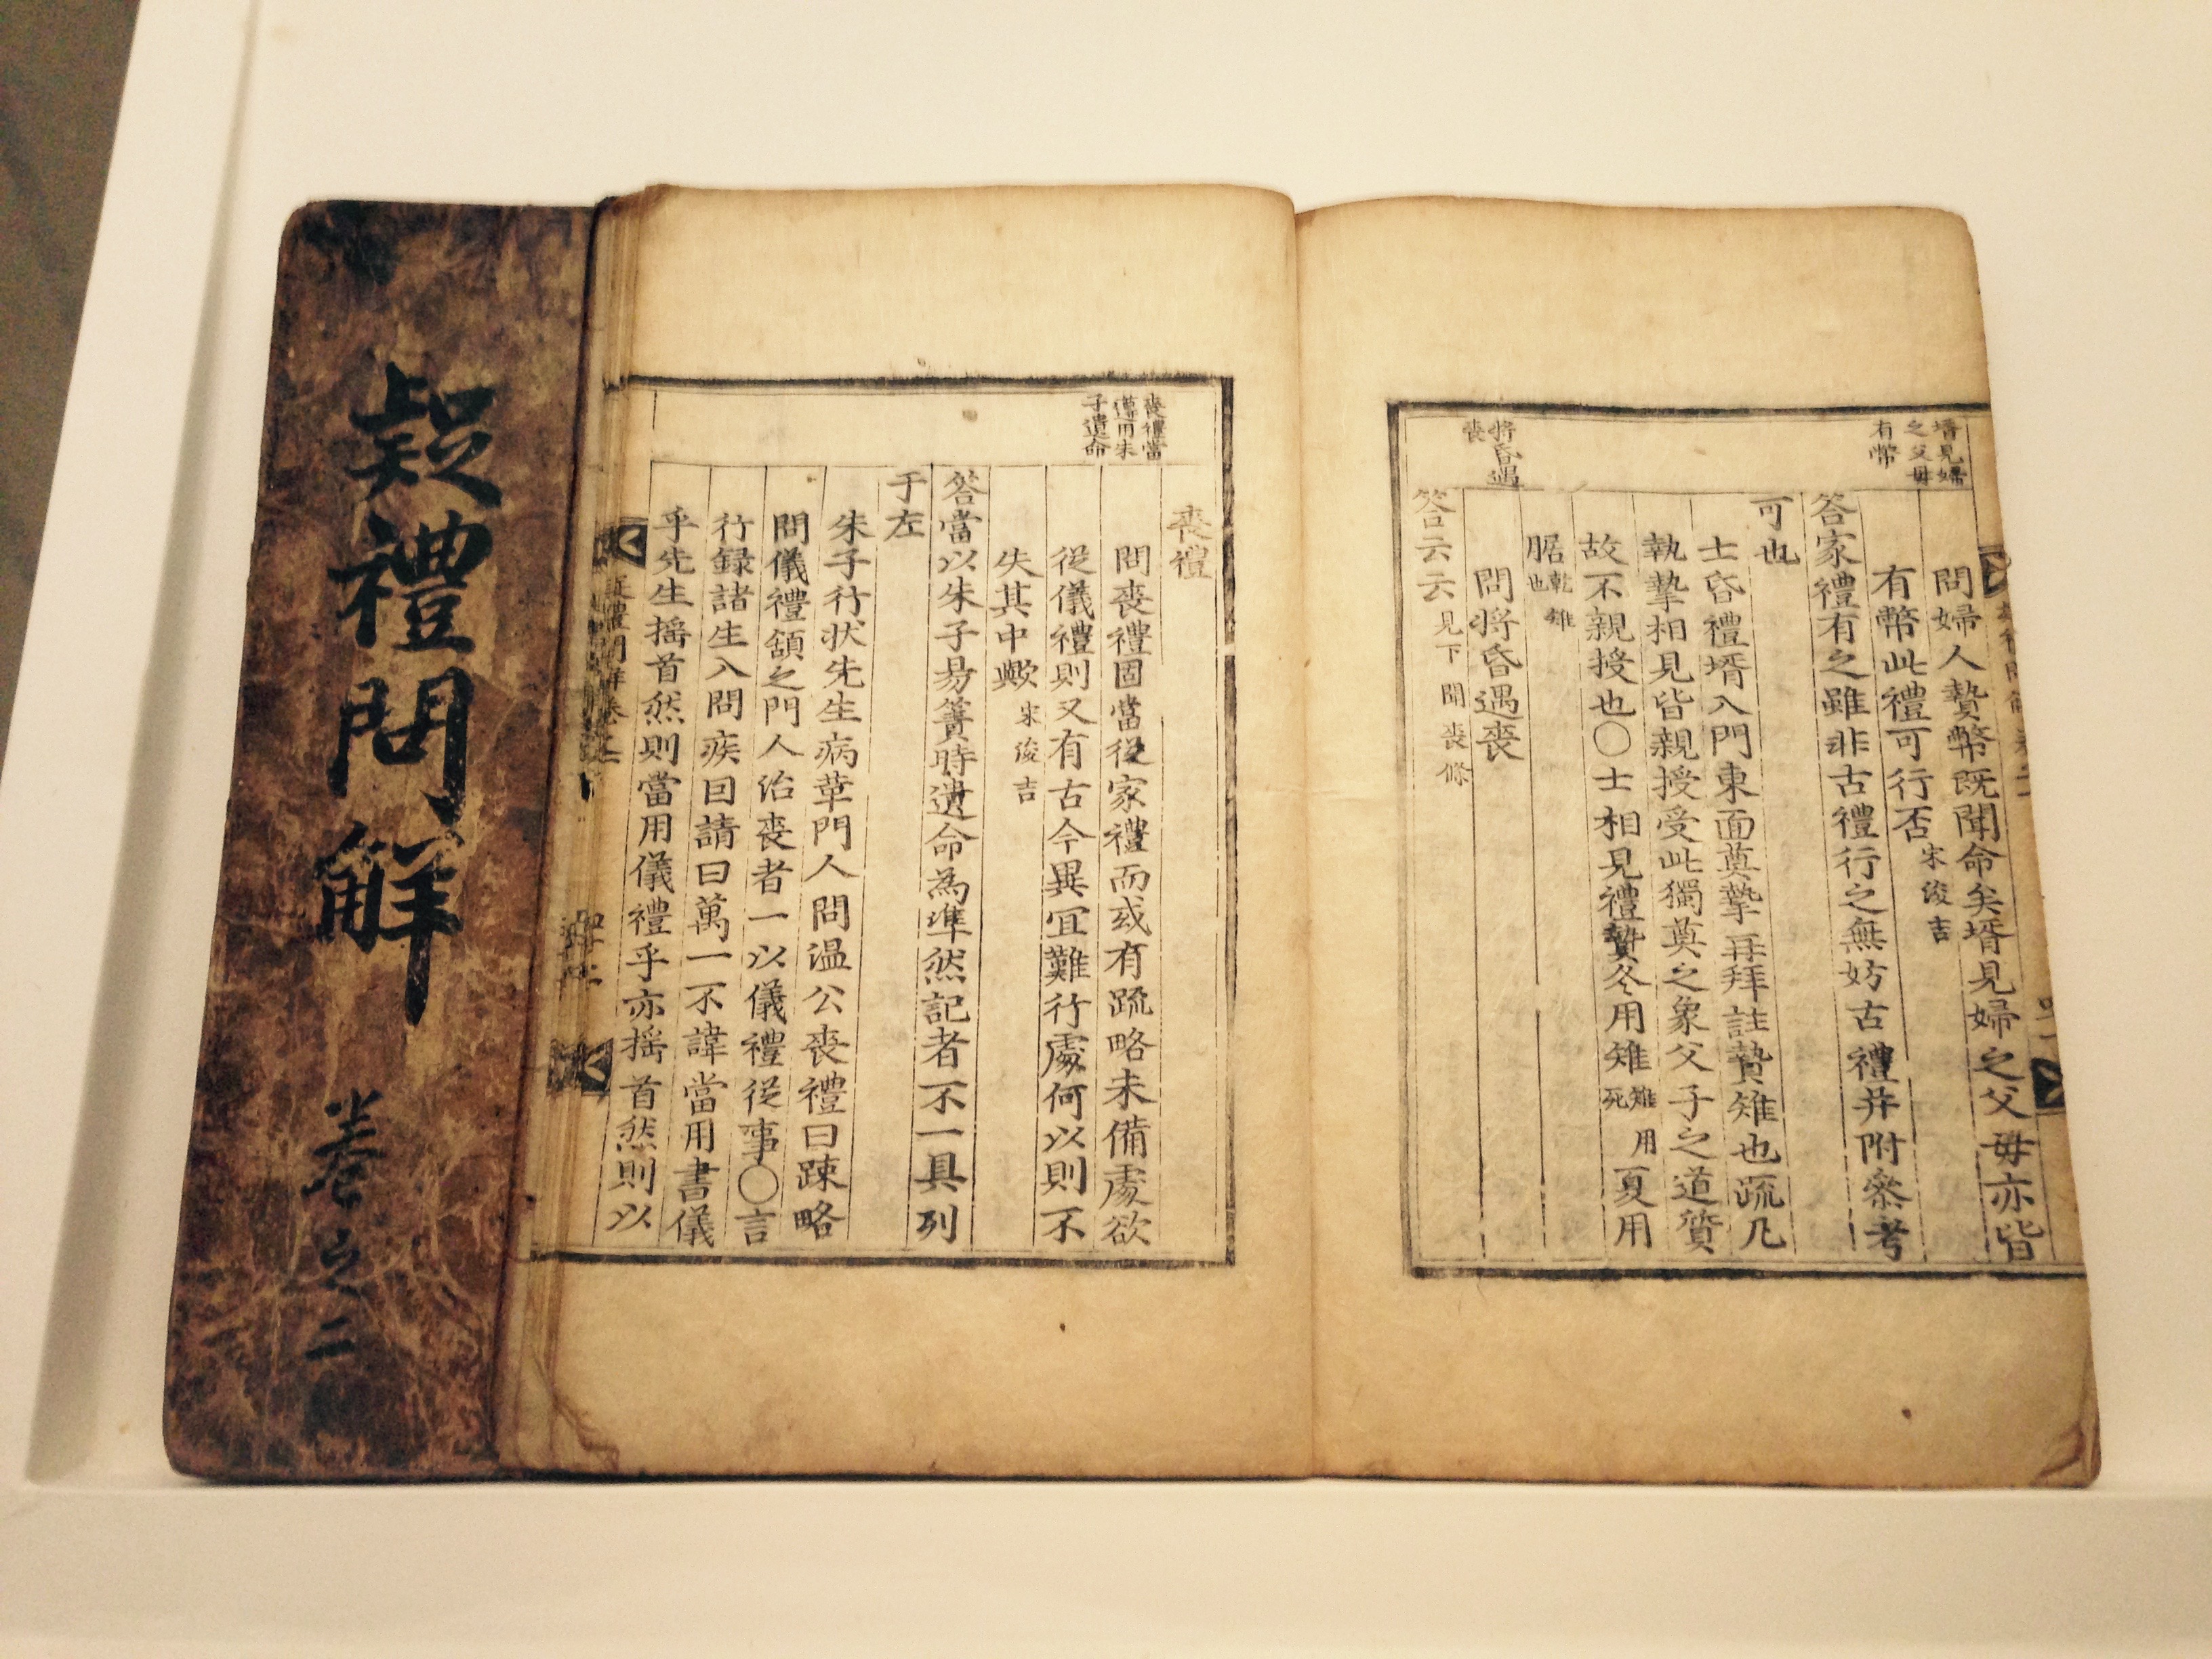 疑禮問解 卷之二
壻見婦
之父母
有幣
問婦人贄幣既聞命矣壻見婦之父母亦皆
有幣此禮可行否 宋浚吉
答家禮有之雖非古禮行之無妨古禮幷附參考
可也
士昏禮壻入門東面奠摯再拜註贄雉也疏凡
執摯相見皆親授受此獨奠之象父子之道質
故不親授也〇士相見禮贄冬用雉 雉用死 夏用
腒 乾雉也
將昏遇
喪
問將昏遇喪
答云云 見下聞喪條
喪禮
喪禮當
遵用朱
子遺命
問喪禮固當從家禮而或有疏略未備處欲
從儀禮則又有古今異宜難行處何以則不
失其中歟 宋浚吉
答當以朱子易簀時遺命為準然記者不一具列
于左
朱子行状先生病革門人問温公喪禮曰踈略
問儀禮頷之門人治喪者一以儀禮從事〇言
行録諸生入問疾因請曰萬一不諱當用書儀
乎先生搖首然則當用儀禮乎亦搖首然則以
疑禮問解卷之二